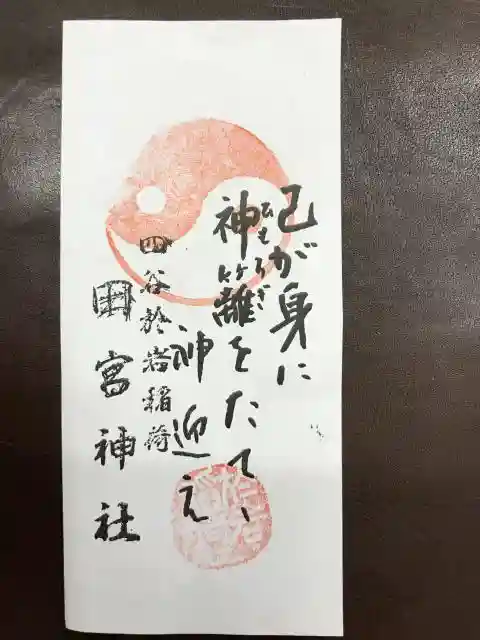 己が身に
神籬をたて、
ひもろぎ
神迎え
四谷於岩稲荷
田宮神社